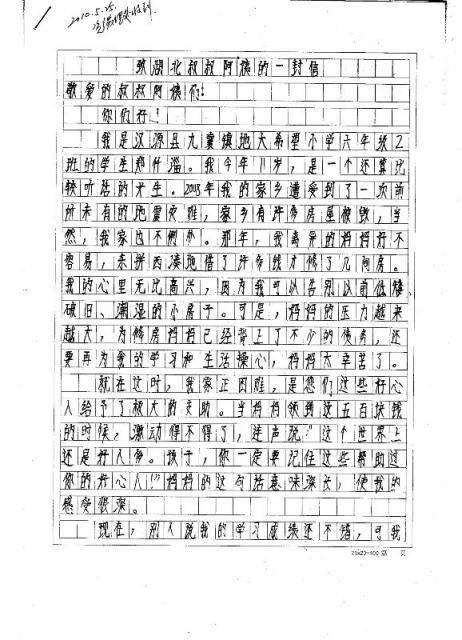 2010.5.25.
致湖北叔叔阿姨的一封信
敬爱的叔叔阿姨们:
你们好!
我是汉源县九襄镇地大希望小学六年级2
班的学生郑什淄。我今年11岁,是一个还算比
较听话的学生。2008年我的家乡遭受到了一次前
所未有的地震灾难,家乡有许多房屋被毁,当
然,我家也不例外。那年,我离异的妈妈好不
容易,东拼西凑地借了许多钱才修了几间房。
我的心里无比高兴,因为我可以告别以前低矮、
破旧、潮湿的小房子。可是,妈妈的压力越来
越大,为修房妈妈已经背上了不少的债务,还
要再为我的学习和生活操心,妈妈太辛苦了。
就在这时,我家正困难,是您们这些好心
人给予了极大的支助。当妈妈领到这五百块钱
的时候,激动得不得了,连声说:"这个世界上
还是好人多。孩子,你一定要记住这些帮助过
你的好心人!"妈妈的这句话意味深长,使我的
感受很深。
现在,别人说我的学习成绩还不错,可我